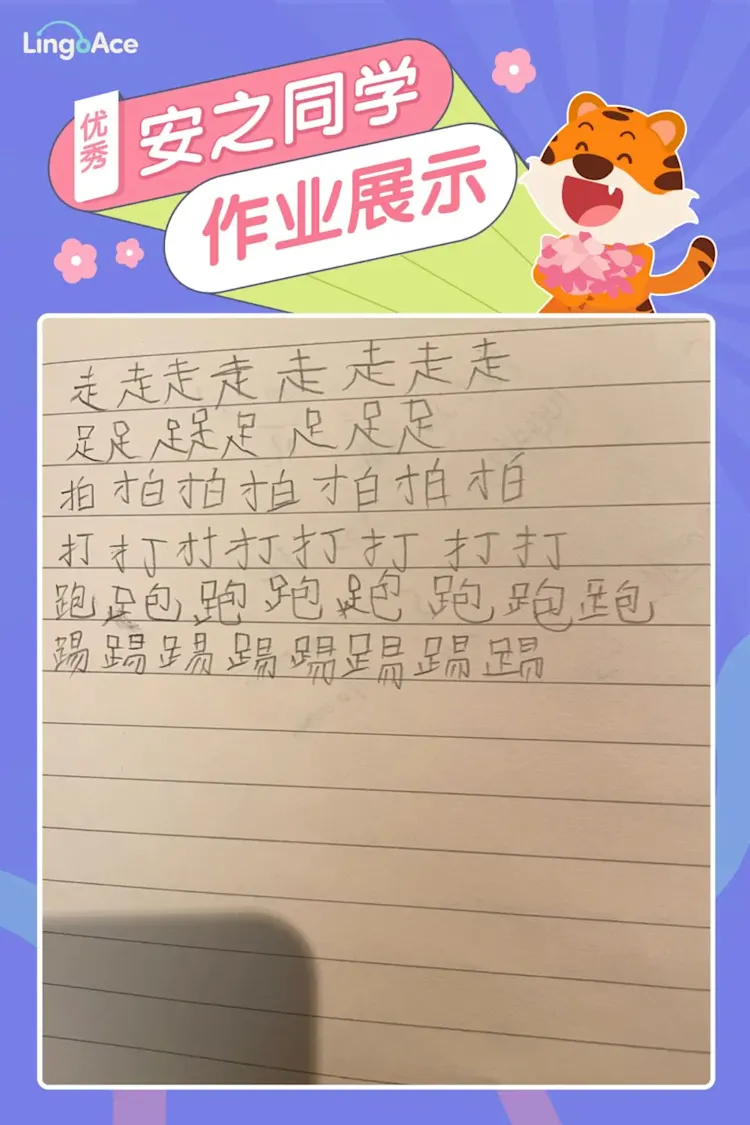 LingoAce
优秀
安之同学
作业展示
走走走走走走走走
足足足足足足足足
拍拍拍拍拍拍拍
打打打打打打打打
跑跑跑跑跑跑跑跑
踢踢踢踢踢踢踢踢